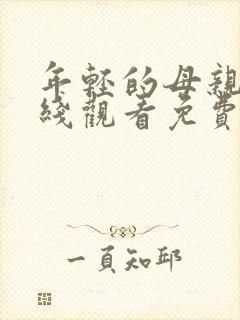 年輕的母親
綫觀看免費
一頁知邱